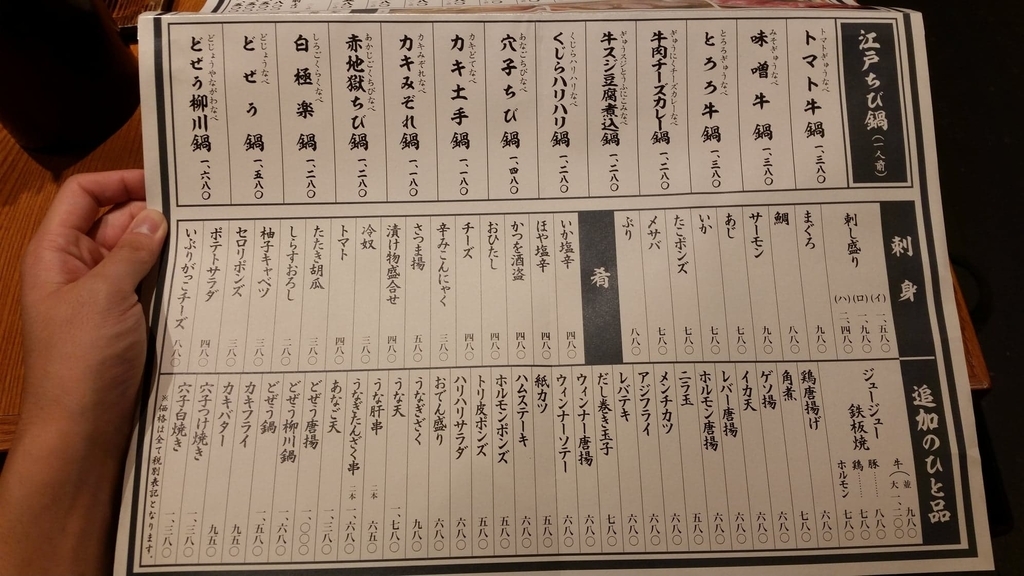 江戸ちび鍋(一人前)
トマトぎゅうなべ
トマト牛鍋 一、三八〇
みそぎゅうなべ
味噌牛鍋 一、三八〇
とろろぎゅうなべ
とろろ牛鍋 一、三八〇
ぎゅうにくチーズカレーなべ
牛肉チーズカレー鍋 一、二八〇
ぎゅうスジとうふにこみなべ
牛スジ豆腐煮込鍋 一、二八〇
くじらハリハリなべ
くじらハリハリ鍋 一、二八〇
あなごちびなべ
穴子ちび鍋 一、四八〇
カキどてなべ
カキ土手鍋 一、一八〇
カキみぞれなべ
カキみぞれ鍋 一、一八〇
あかじごくちびなべ
赤地獄ちび鍋 一、二八〇
しろごくらくなべ
白極楽鍋 一、二八〇
どじょうなべ
どぜう鍋 一、五八〇
どじょうやながわなべ
どぜう柳川鍋 一、六八〇
刺身
刺し盛り (イ) 一、五八〇
(ロ) 一、九八〇
(ハ) 二、四八〇
まぐろ 九八〇
鯛 八八〇
サーモン 九八〇
あじ 七八〇
いか 七八〇
たこポンズ 七八〇
メサバ 七八〇
ぶり 八八〇
肴
いか塩辛 四八〇
ほや塩辛 四八〇
かつを酒盗 四八〇
おひたし 四八〇
チーズ 四八〇
辛みこんにゃく 三八〇
さつま揚 五八〇
漬け物盛合せ
冷奴
トマト 四八〇
たたき胡瓜 三八〇
しらすおろし 二八〇
柚子キャベツ 三八〇
セロリポンズ 三八〇
ポテトサラダ 四八〇
いぶりがっこチーズ 八八〇
追加のひと品
ジュージュー鉄板焼
牛(並 九八〇
大 一、二〇〇
豚…… 八八〇
鶏…… 七八〇
ホルモン 七八〇
鶏唐揚げ 七八〇
角煮 八八〇
ゲソ揚 六八〇
イカ天 六八〇
レバー唐揚 六八〇
ホルモン唐揚 六八〇
ニラ玉 六八〇
メンチカツ 五八〇
アジフライ 六八〇
レバテキ 六八〇
だし巻き玉子 六八〇
ウィンナー唐揚 六八〇
ウィンナーソテー 六八〇
紙カツ 五八〇
ハムステーキ 六八〇
ホルモンポンズ 五八〇
トリ皮ポンズ 五八〇
ハリハリサラダ 六八〇
おでん盛り 六八〇
うなぎざく 九八〇
うな天 一、七八〇
うな肝串 二本 六五〇
うなぎたんざく串 二本 一、六八〇
あなご天 一、三八〇
どぜう唐揚 一、〇〇〇
どぜう柳川鍋 一、六八〇
どぜう鍋 一、五八〇
カキフライ 九五〇
カキバター 九五〇
穴子つけ焼き
穴子白焼き 一、三八〇
※価格は全て税別表記となります。